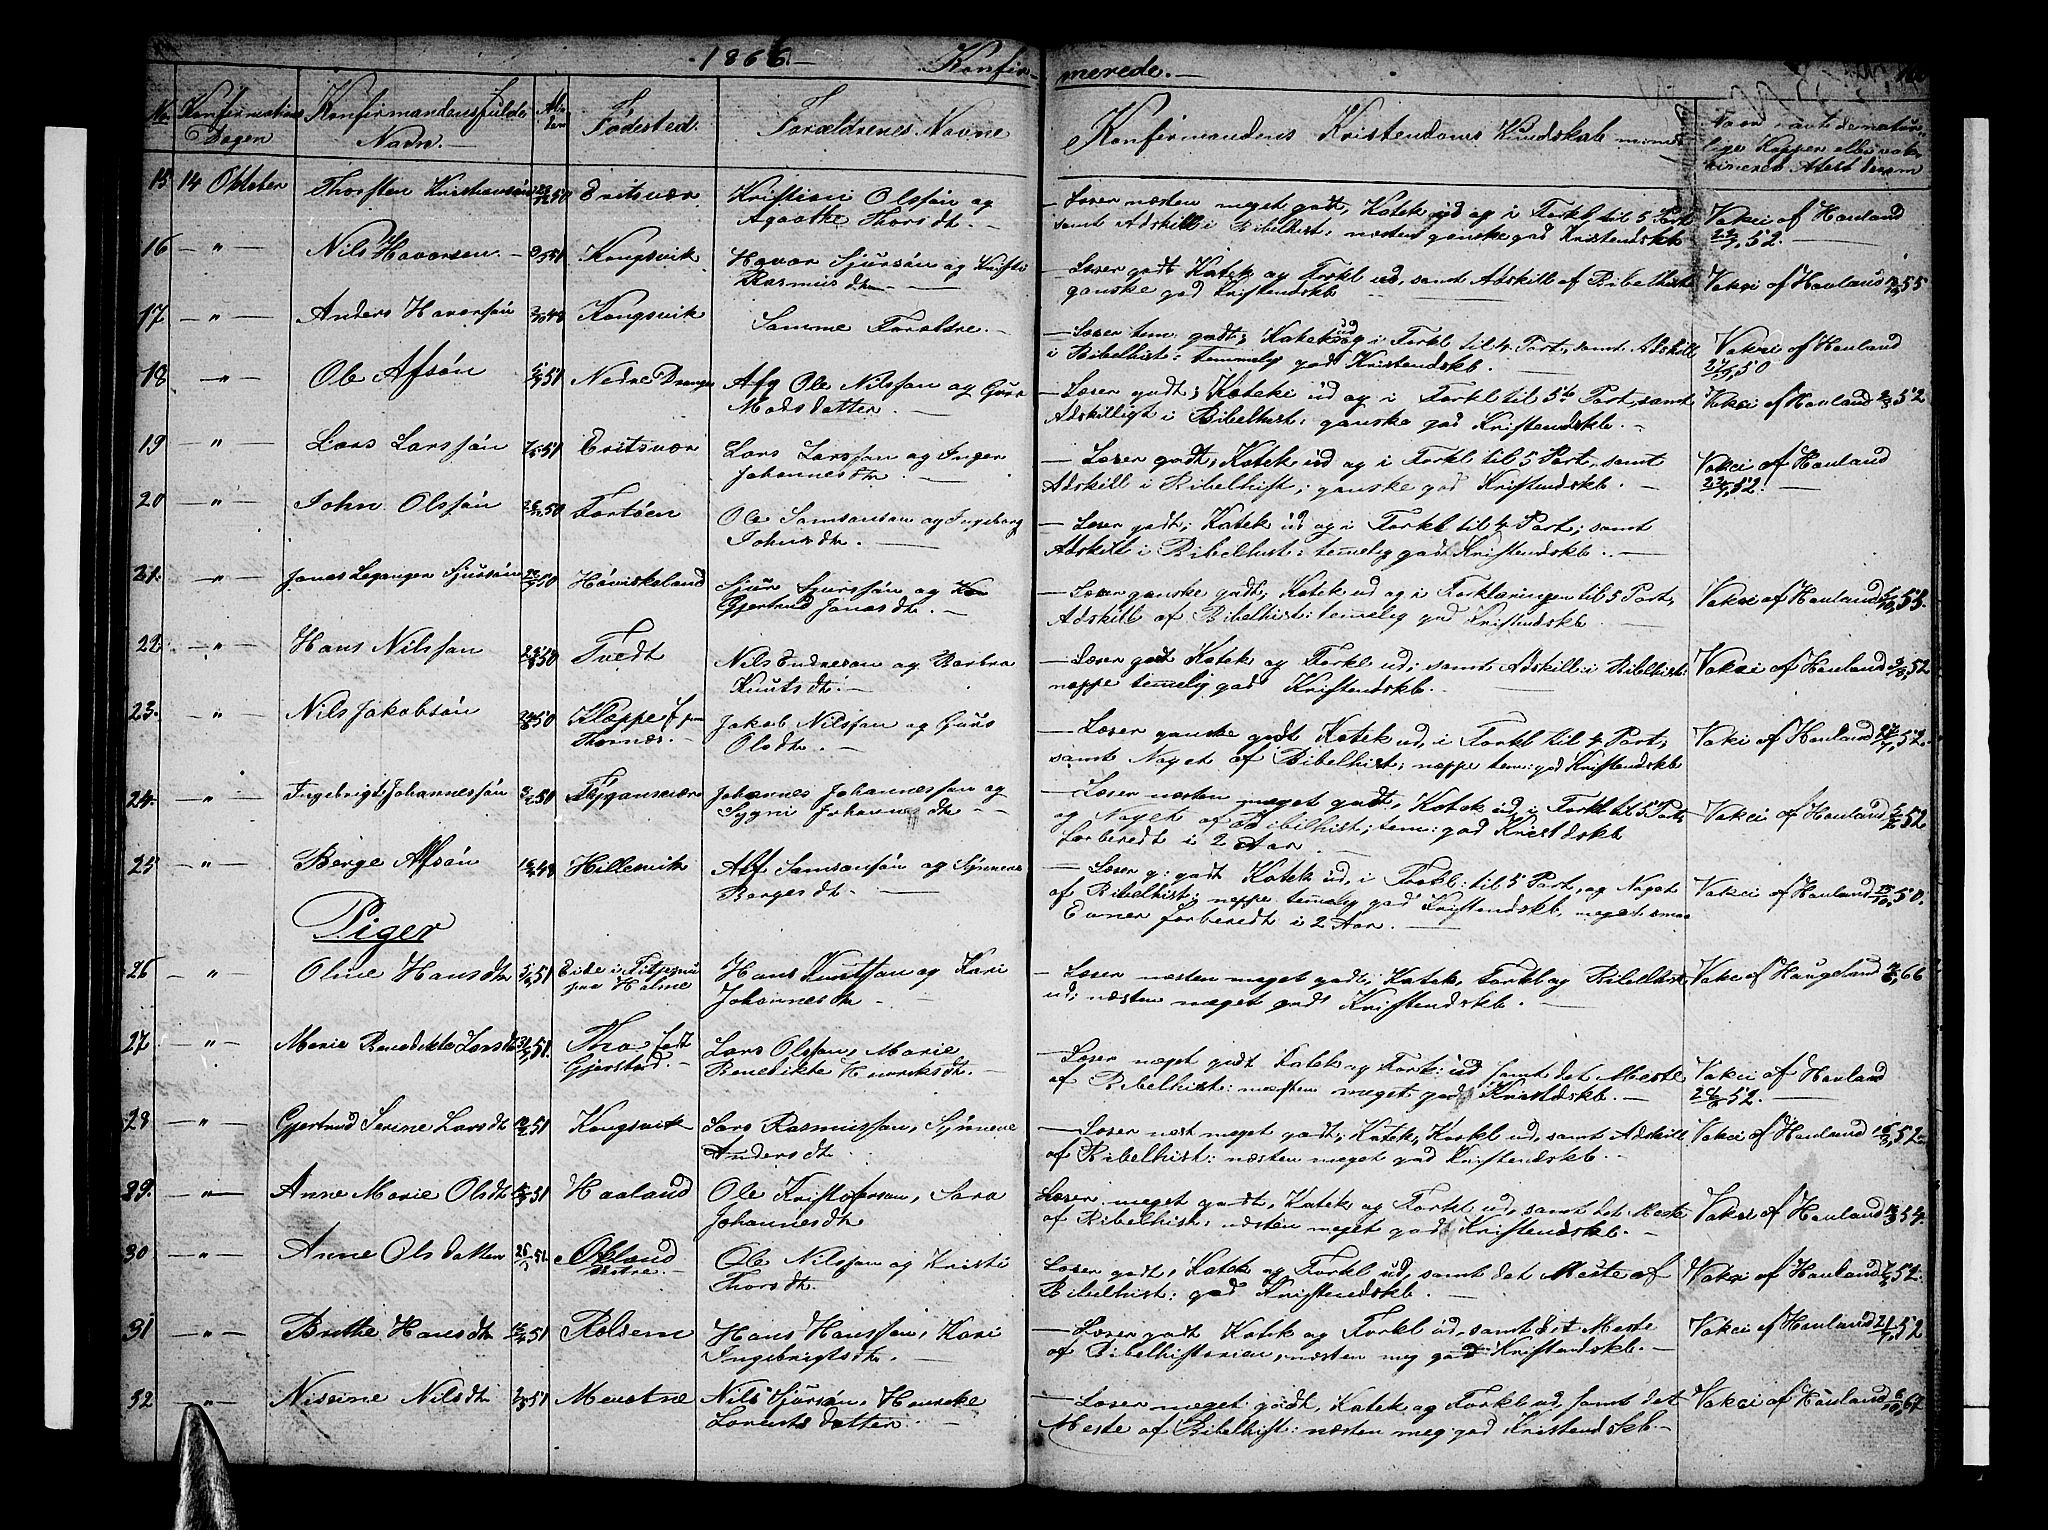 1866.— Konfir-
merede.—
No
Konfirmations
Dagen
Konfirmandens fulde
Navn.—
Al-
der
Fødested.
Forældrenes Navne
Konfirmandens Kristendoms Kundskab
Naar i havt de natur-
lige Kopper eller vak-
cineret Attest derom
15 14 Oktober Thorsten Kristiansøn 50 Eritsvær Kristian Olssøn og
Agathe Thorsdt. —
— Læser næsten meget godt, Katek ud og i Forkl til 5 Part
samt Adskill i Bibelhist, næsten ganske god Kristendskb
Vakci af Hauland
52. —
16 — " — Nils Havorsen 51 Kongsvik Havor Sjursøn og Kristi
Rasmusdtr —
— Læser godt Katek og Forkl ud, samt Adskill af Bibelhist
ganske god Kristendskb
Vakci af Hauland 55
17 — " — Anders Havorsøn 48 Kongsvik Samme Forældre. —
— Læser tem godt; Katek ud og i Forkl til 4 Part, samt Adskill
i Bibelhist: temmelig god Kristendskb. —
Vakci af Hauland
50
18 — " — Ole Afsøn 51 Nedre Dranges Afg Ole Nilssøn og Guro
Madsdatter. —
— Læser godt; Kateki ud og i Forkl til 5te Part, samt
Adskilligt i Bibelhist: ganske god Kristendskb. —
Vakci af Hauland 52
19 — " — Lars Larssøn 51 Eritsvær Lars Larssøn og Inger
Johannesdtr. —
— Læser godt, Katek ud og i Forkl til 5 Part, samt
Adskill i Bibelhist; ganske god Kristendskb. —
Vakci af Hauland
52.
20 — " — John Olssøn 50 Fortøen Ole Samsonsøn og Ingeborg
Johnsdtr. —
— Læser godt; Katek ud og i Forkl til 4 Part; samt
Adskill i Bibelhist: temelig godt Kristendskb. —
21. — " — Jonas Legangen Sjursøn 50 Høviskeland Sjur Sjurssøn og
Gjertrud Jonasdtr. —
— Læser ganske godt, Katek ud og i Forklaringen til 5 Part,
Adskill af Bibelhist: temelig god Kristendskb. —
Vakci af Hauland 55.
22 — " — Hans Nilssøn 50 Tvedt Nils Endresen og Barbra
Knutsdtr. —
— Læser godt Katek og Forkl ud; samt Adskill i Bibelhist:
neppe temelig god Kristendskb. —
Vakci af Hauland 52
23. — " — Nils Jakobsøn 50 Kleppe
Thornæs. — Jakob Nilssøn og Guro
Olsdtr. —
— Læser ganske godt Katek ud, i Forkl til 4 Part,
samt Noget af Bibelhist; neppe tem: god Kristendskb
Vakci af Hauland 52.
24. — " — Ingebrigt Johannessøn 50 Johannes Johannessøn og
Sygni Johannesdtr —
— Læser næsten meget godt, Katek ud, i Forkl til 5 Part,
og Noget af Bibelhist; tem: god Kristdskb
forberedt i 2 Aar —
Vakci af Hauland 52
25 — " — Berge Alfsøn 48 Hillesvik Alf Samsonsøn og Synneve
Bergesdtr. —
— Læser g: godt Katek ud, i Forkl: til 5 Part, og Noget
af Bibelhist; neppe temmelig god Kristendskb, meget smaa
Evner forberedt i 2 Aar. —
Vakci af Hauland 50.
Piger
26 — " — Oline Hansdtr 51 Eide i Fitjesogn
paa Halme Hans Knutssøn og Kari
Johannesdtr —
— Læser næsten meget godt, Katek, Forkl og Bibelhist
ud; næsten meget god Kristendskb. —
Vakc af Haugeland 66
27 — " — Marie Benedikte Larsdtr 51. Tho født
Gjerstad. — Lars Olssøn, Marie
Benedikte Henriksdtr. —
— Læser meget godt Katek og Fork: ud samt det Meste
af Bibelhist: næsten meget god Kristdskb. —
Vakci af Hauland
52. —
28 — " — Gjertrud Serine Larsdtr 51 Kongsvik Lars Rasmussøn, Synneve
Andersdtr.
— Læser næst meget godt; Katek, Forkl ud, samt Adskill
af Bibelhist: næsten meget god Kristendskb. —
Vakci af Hauland 52.
29. — " — Anne Marie Olsdtr 51 Haaland Ole Kristofersøn, Sara
Johannesdtr
Læser meget godt, Katek og Forkl ud, samt det Meste
af Bibelhist, næsten meget god Kristendskb. —
Vakci af Hauland 54.
30 — " — Anne Olsdatter Økland
Vestre. — Ole Nilssøn og Kristi
Thorsdtr.
Læser godt, Katek og Forkl ud, samt det Meste af
Bibelhist: god Kristendskb. —
Vakci af Hauland 52.
31 — " — Brithe Hansdtr 51 Rolsem Hans Hanssøn, Kari
Ingebrigtsdtr. —
— Læser godt Katek og Forkl ud, samt det Meste
af Bibelhistorien, næsten meg god Kristendskb. —
Vakci af Hauland 52
32 — " — Nissine Nilsdtr 51 Meustne Nils Sjursøn, Henrike
Lorentsdatter. —
— Læser meget godt, Katek og Forkl ud, samt det
Meste af Bibelhist: næsten meg god Kristendskb —
Vakci af Hauland 61